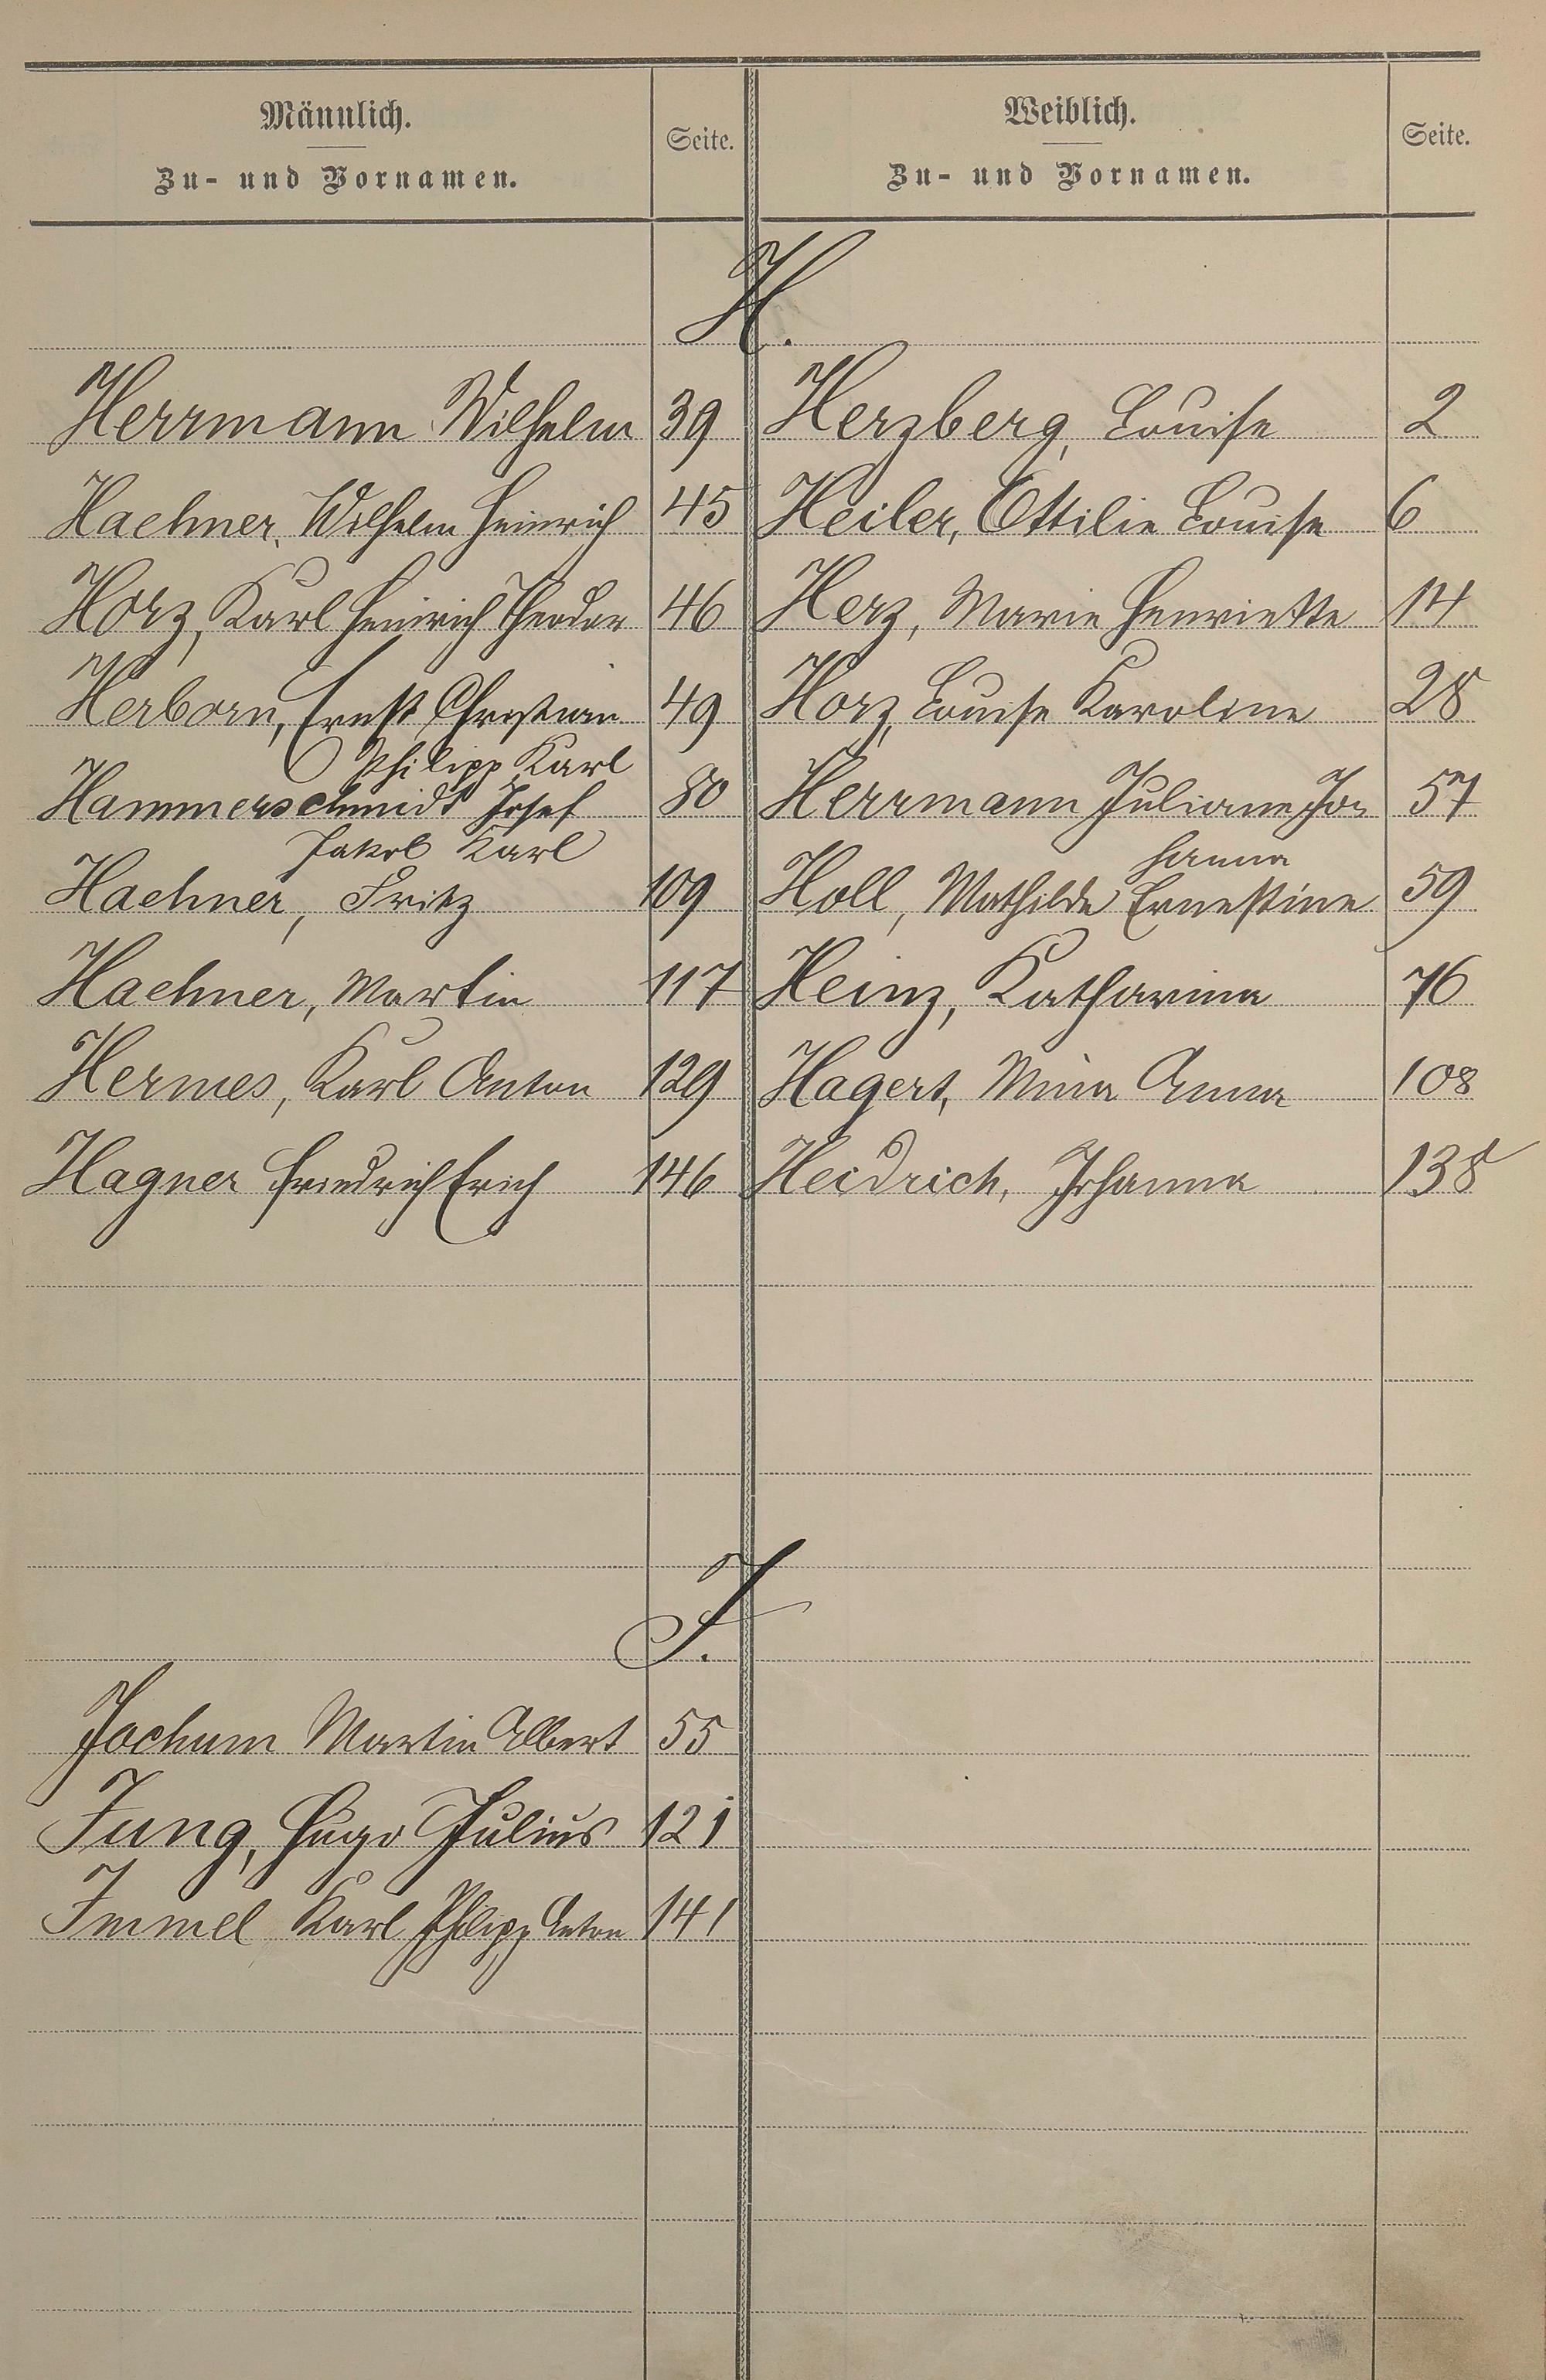 Männlich.
Zu- und Vornamen.
Seite.
Weiblich.
Zu- und Vornamen.
Seite.
H.
Herrmann Wilhelm 39
Haehner, Wilhelm Heinrich 45
Horz, Karl Heinrich Theodor 46
Herborn, Ernst Christian 49
Philipp Karl
Hammerschmidt Josef 80
Jakob Karl
Haehner, Fritz 109
Haehner, Martin 117
Hermes, Karl Anton 129
Hagner Friedrich Erich 146
Herzberg, Louise 2
Heiler, Ottilie Louise 6
Herz, Marie Henriette 14
Horz, Louise Karoline 28
Herrmann Juliane Jo- 57
hanna
Holl, Mathilde Ernestine 59
Heinz, Katharina 76
Hagert, Mina Anna 108
Heidrich, Johanna 138
J.
Jochum Martin Albert 55
Jung, Hugo Julius 121
Immel Karl Philipp Anton 141